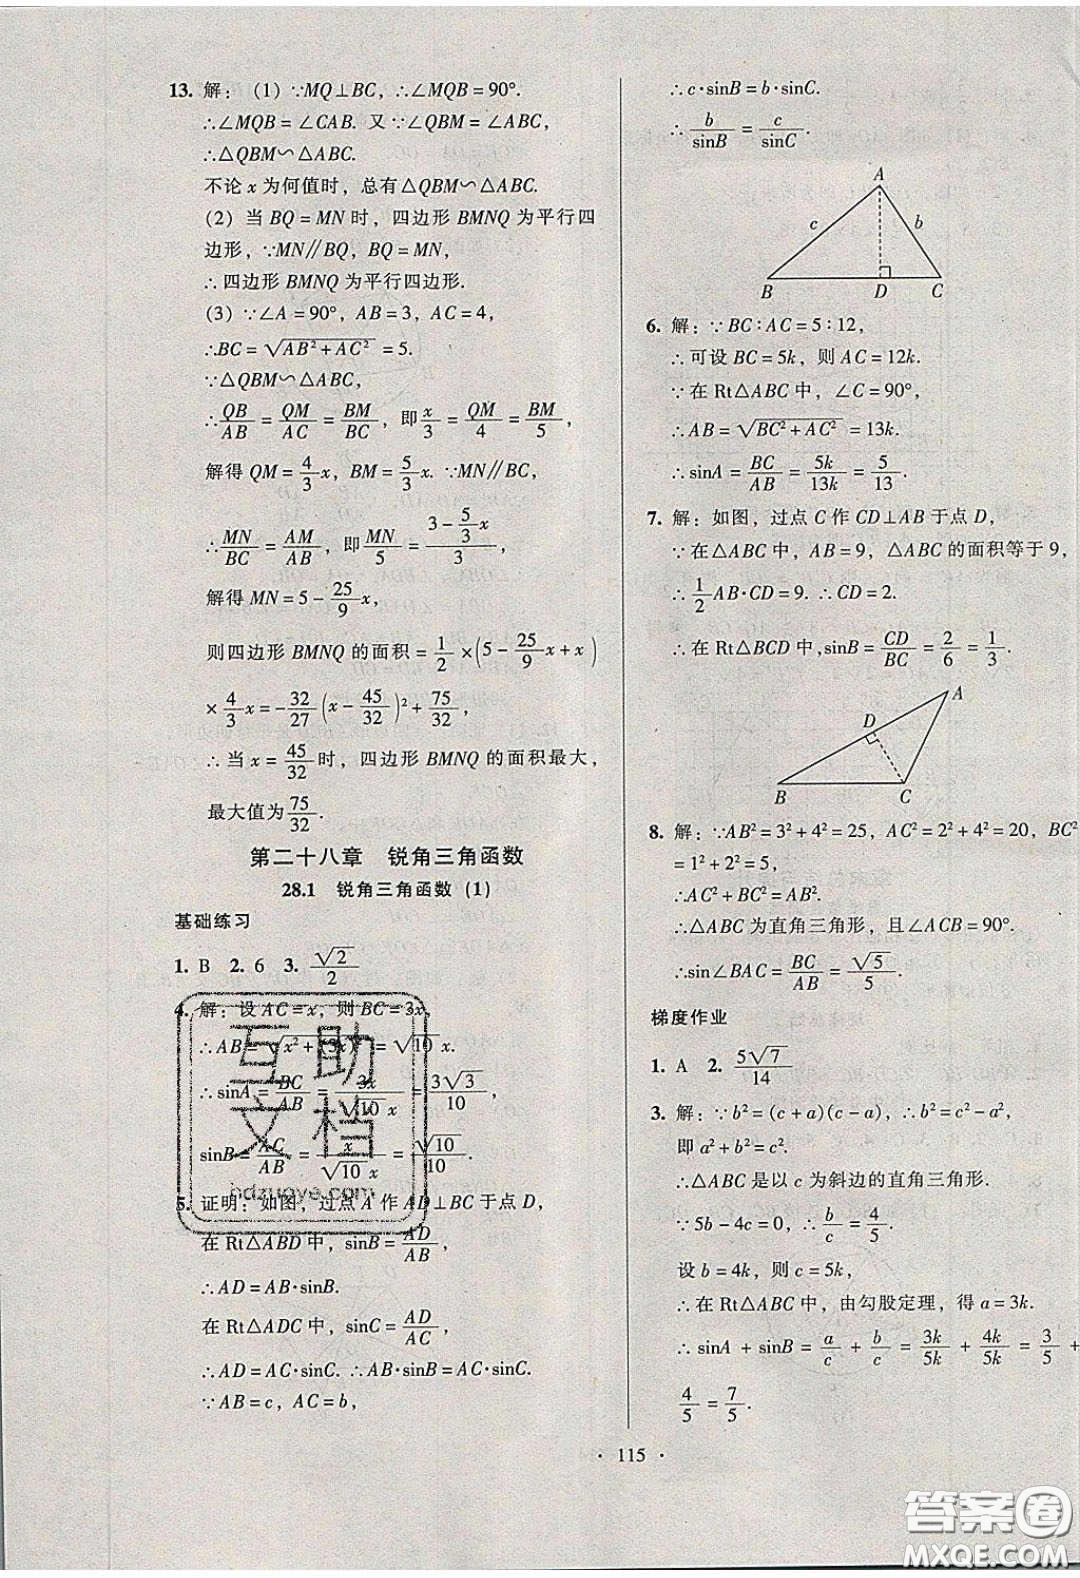 13. 解：(1) ∵MQ⊥BC，∴∠MQB＝90°.
∴∠MQB＝∠CAB. 又∵∠QBM＝∠ABC，
∴△QBM∽△ABC.
不论 x 为何值时，总有△QBM∽△ABC.
(2) 当 BQ＝MN 时，四边形 BMNQ 为平行四
边形，∵MN∥BQ，BQ＝MN，
∴四边形 BMNQ 为平行四边形.
(3) ∵∠A＝90°，AB＝3，AC＝4，
∴BC＝√(AB²＋AC²)＝5.
∵△QBM∽△ABC，
∴QB/AB＝QM/AC＝BM/BC，即 x/3＝QM/4＝BM/5，
解得 QM＝4/3 x，BM＝5/3 x. ∵MN∥BC，
∴MN/BC＝AM/AB，即 MN/5＝(3－5/3 x)/3，
解得 MN＝5－25/9 x，
则四边形 BMNQ 的面积＝1/2×(5－25/9 x＋x)
×4/3 x＝－32/27(x－45/32)²＋75/32，
∴当 x＝45/32 时，四边形 BMNQ 的面积最大，
最大值为 75/32.
第二十八章 锐角三角函数
28.1 锐角三角函数 (1)
基础练习
1. B 2. 6 3. √2/2
4. 解：设 AC＝x，则 BC＝3x，
∴AB＝√(x²＋(3x)²)＝√10 x.
∴sinA＝BC/AB＝3x/(√10 x)＝3√3/10，
sinB＝AC/AB＝x/(√10 x)＝√10/10.
5. 证明：如图，过点 A 作 AD⊥BC 于点 D，
在 Rt△ABD 中，sinB＝AD/AB，
∴AD＝AB·sinB.
在 Rt△ADC 中，sinC＝AD/AC，
∴AD＝AC·sinC. ∴AB·sinB＝AC·sinC.
∵AB＝c，AC＝b，
互助
文档
hdzuoye.com
∴c·sinB＝b·sinC.
∴b/sinB＝c/sinC.
A
c
b
B
D
C
6. 解：∵BC∶AC＝5∶12，
∴可设 BC＝5k，则 AC＝12k.
∵在 Rt△ABC 中，∠C＝90°，
∴AB＝√(BC²＋AC²)＝13k.
∴sinA＝BC/AB＝5k/13k＝5/13.
7. 解：如图，过点 C 作 CD⊥AB 于点 D，
∵在△ABC 中，AB＝9，△ABC 的面积等于 9，
∴1/2 AB·CD＝9. ∴CD＝2.
∴在 Rt△BCD 中，sinB＝CD/BC＝2/6＝1/3.
A
D
B
C
8. 解：∵AB²＝3²＋4²＝25，AC²＝2²＋4²＝20，BC²
＝1²＋2²＝5，
∴AC²＋BC²＝AB².
∴△ABC 为直角三角形，且∠ACB＝90°.
∴sin∠BAC＝BC/AB＝√5/5.
梯度作业
1. A 2. 5√7/14
3. 解：∵b²＝(c＋a)(c－a)，∴b²＝c²－a²，
即 a²＋b²＝c².
∴△ABC 是以 c 为斜边的直角三角形.
∵5b－4c＝0，∴b/c＝4/5.
设 b＝4k，则 c＝5k，
∴在 Rt△ABC 中，由勾股定理，得 a＝3k.
∴sinA＋sinB＝a/c＋b/c＝3k/5k＋4k/5k＝3/5＋
4/5＝7/5.
· 115 ·
答案圈
MXQE.COM